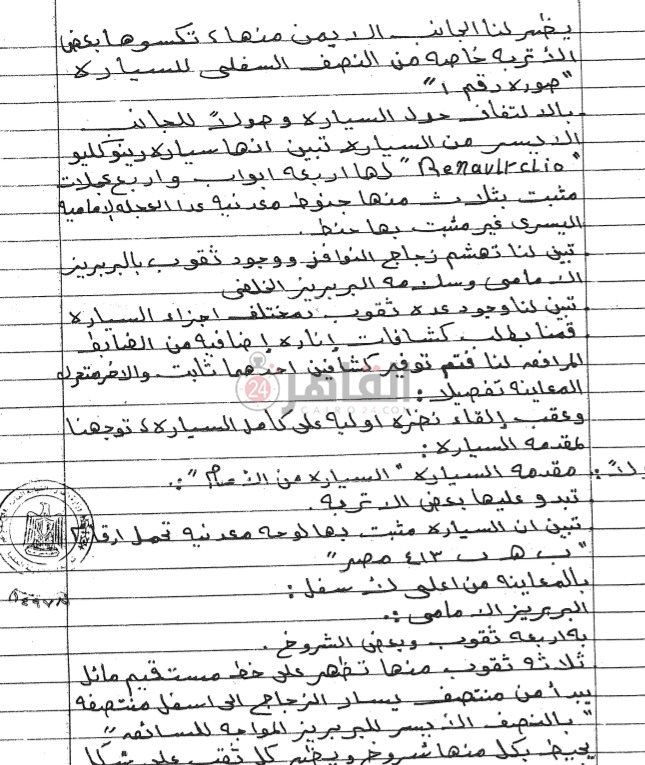 يظهر لنا الجانب الايمن منها، تكسوها بعض
الأتربه خاصه من النصف السفلى للسياره
"صوره رقم ١"
بالالتفاف حول السياره وصولاً للجانب
الايسر من السياره تبين انها سياره رينو كليو
"Renault clio" لها اربعه ابواب واربع عجلات
مثبت بثلاث منها جنوط معدنية عدا العجله الإمامية
اليسرى غير مثبت بها جنط.
تبين لنا تهشم زجاج النوافذ ووجود ثقوب بالبربريز
الامامى وسلامه البربريز الخلفى
تبين لنا وجود عده ثقوب بمختلف اجزاء السياره
قمنا بطلب كشافات إناره إضافيه من الضابط
المرافق لنا فتم توفير كشافين احدهما ثابت والاخر متحرك
المعاينه تفصيلا :
وعقب إلقاء نظره اوليه على كامل السياره، توجهنا
لمقدمه السياره :
مقدمه السياره "السياره من الأمام" :.
تبدو عليها بعض الاتربه.
تبين ان السياره مثبت بها لوحه معدنيه تحمل ارقام
"ب ه ب ٤١٣ مصر"
بالمعاينه من اعلى لأسفل :
البربريز الامامى :.
به اربعه ثقوب وبعض الشروخ.
ثلاثه ثقوب منها تظهر على خط مستقيم مائل
يبدأ من منتصف يسار الزجاج الى اسفل منتصفه
"بالنصف الأيسر للبربريز المواجه للسائق"
يحيط بكل منها شروخ ويظهر كل ثقب على شكل
القاهرة 24
CAIRO24.COM